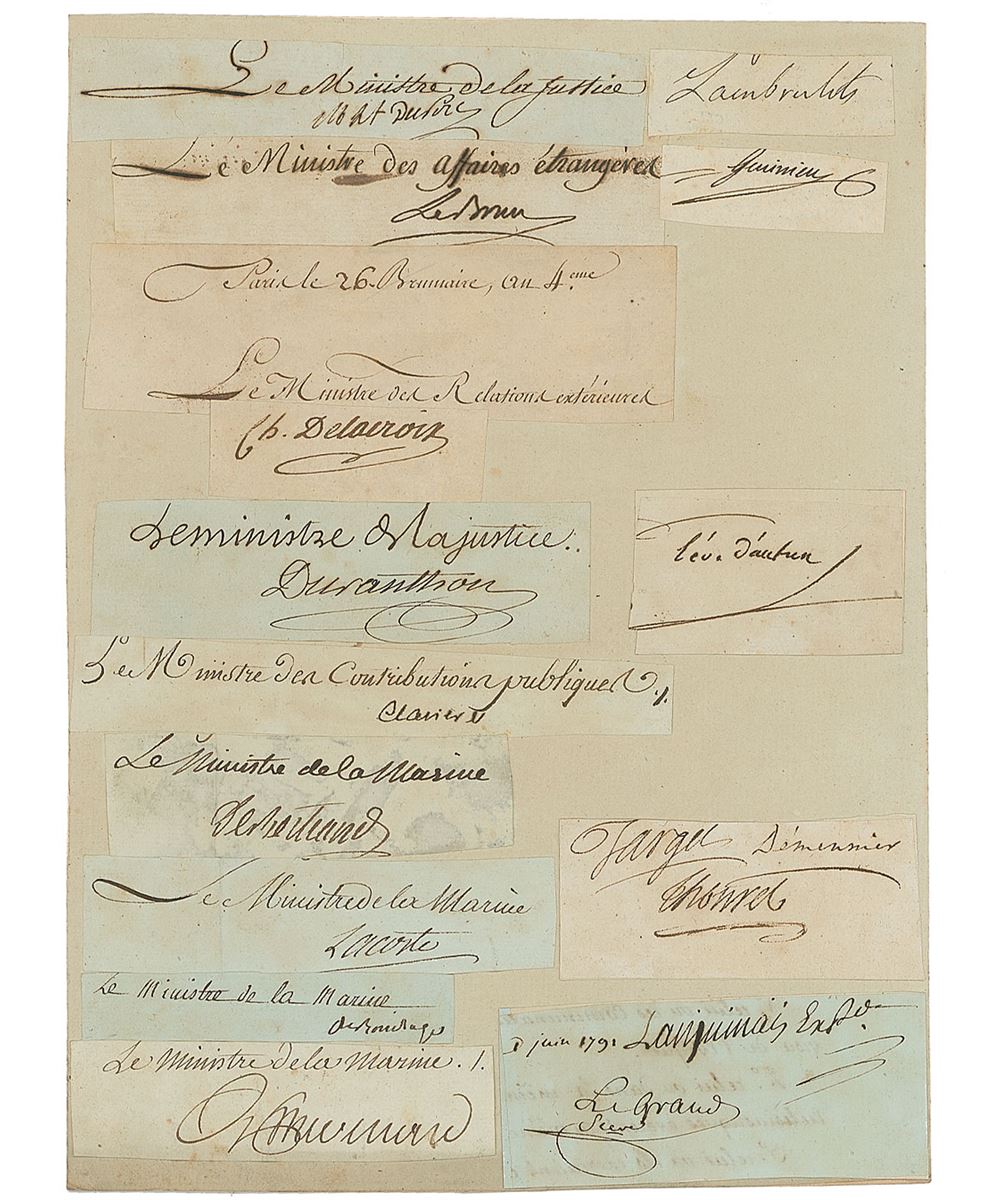 Le Ministre de la Justice
Lambrechts
Le Ministre des affaires étrangères
LeBrun
Paris le 26. Brumaire, an 4.ème
Le Ministre des Relations extérieures
Ch. Delacroix
Le ministre de la justice.
Duranthon
l'év. d'autun
Le Ministre des Contributions publiques ./.
Claviere
Le Ministre de la Marine
DeBertrand
Target Démeunier
Thouret
Le Ministre de la Marine
Lacoste
Le Ministre de la Marine
juin 1791 Lanjuinais
Le Ministre de la Marine. /.
Le Grand